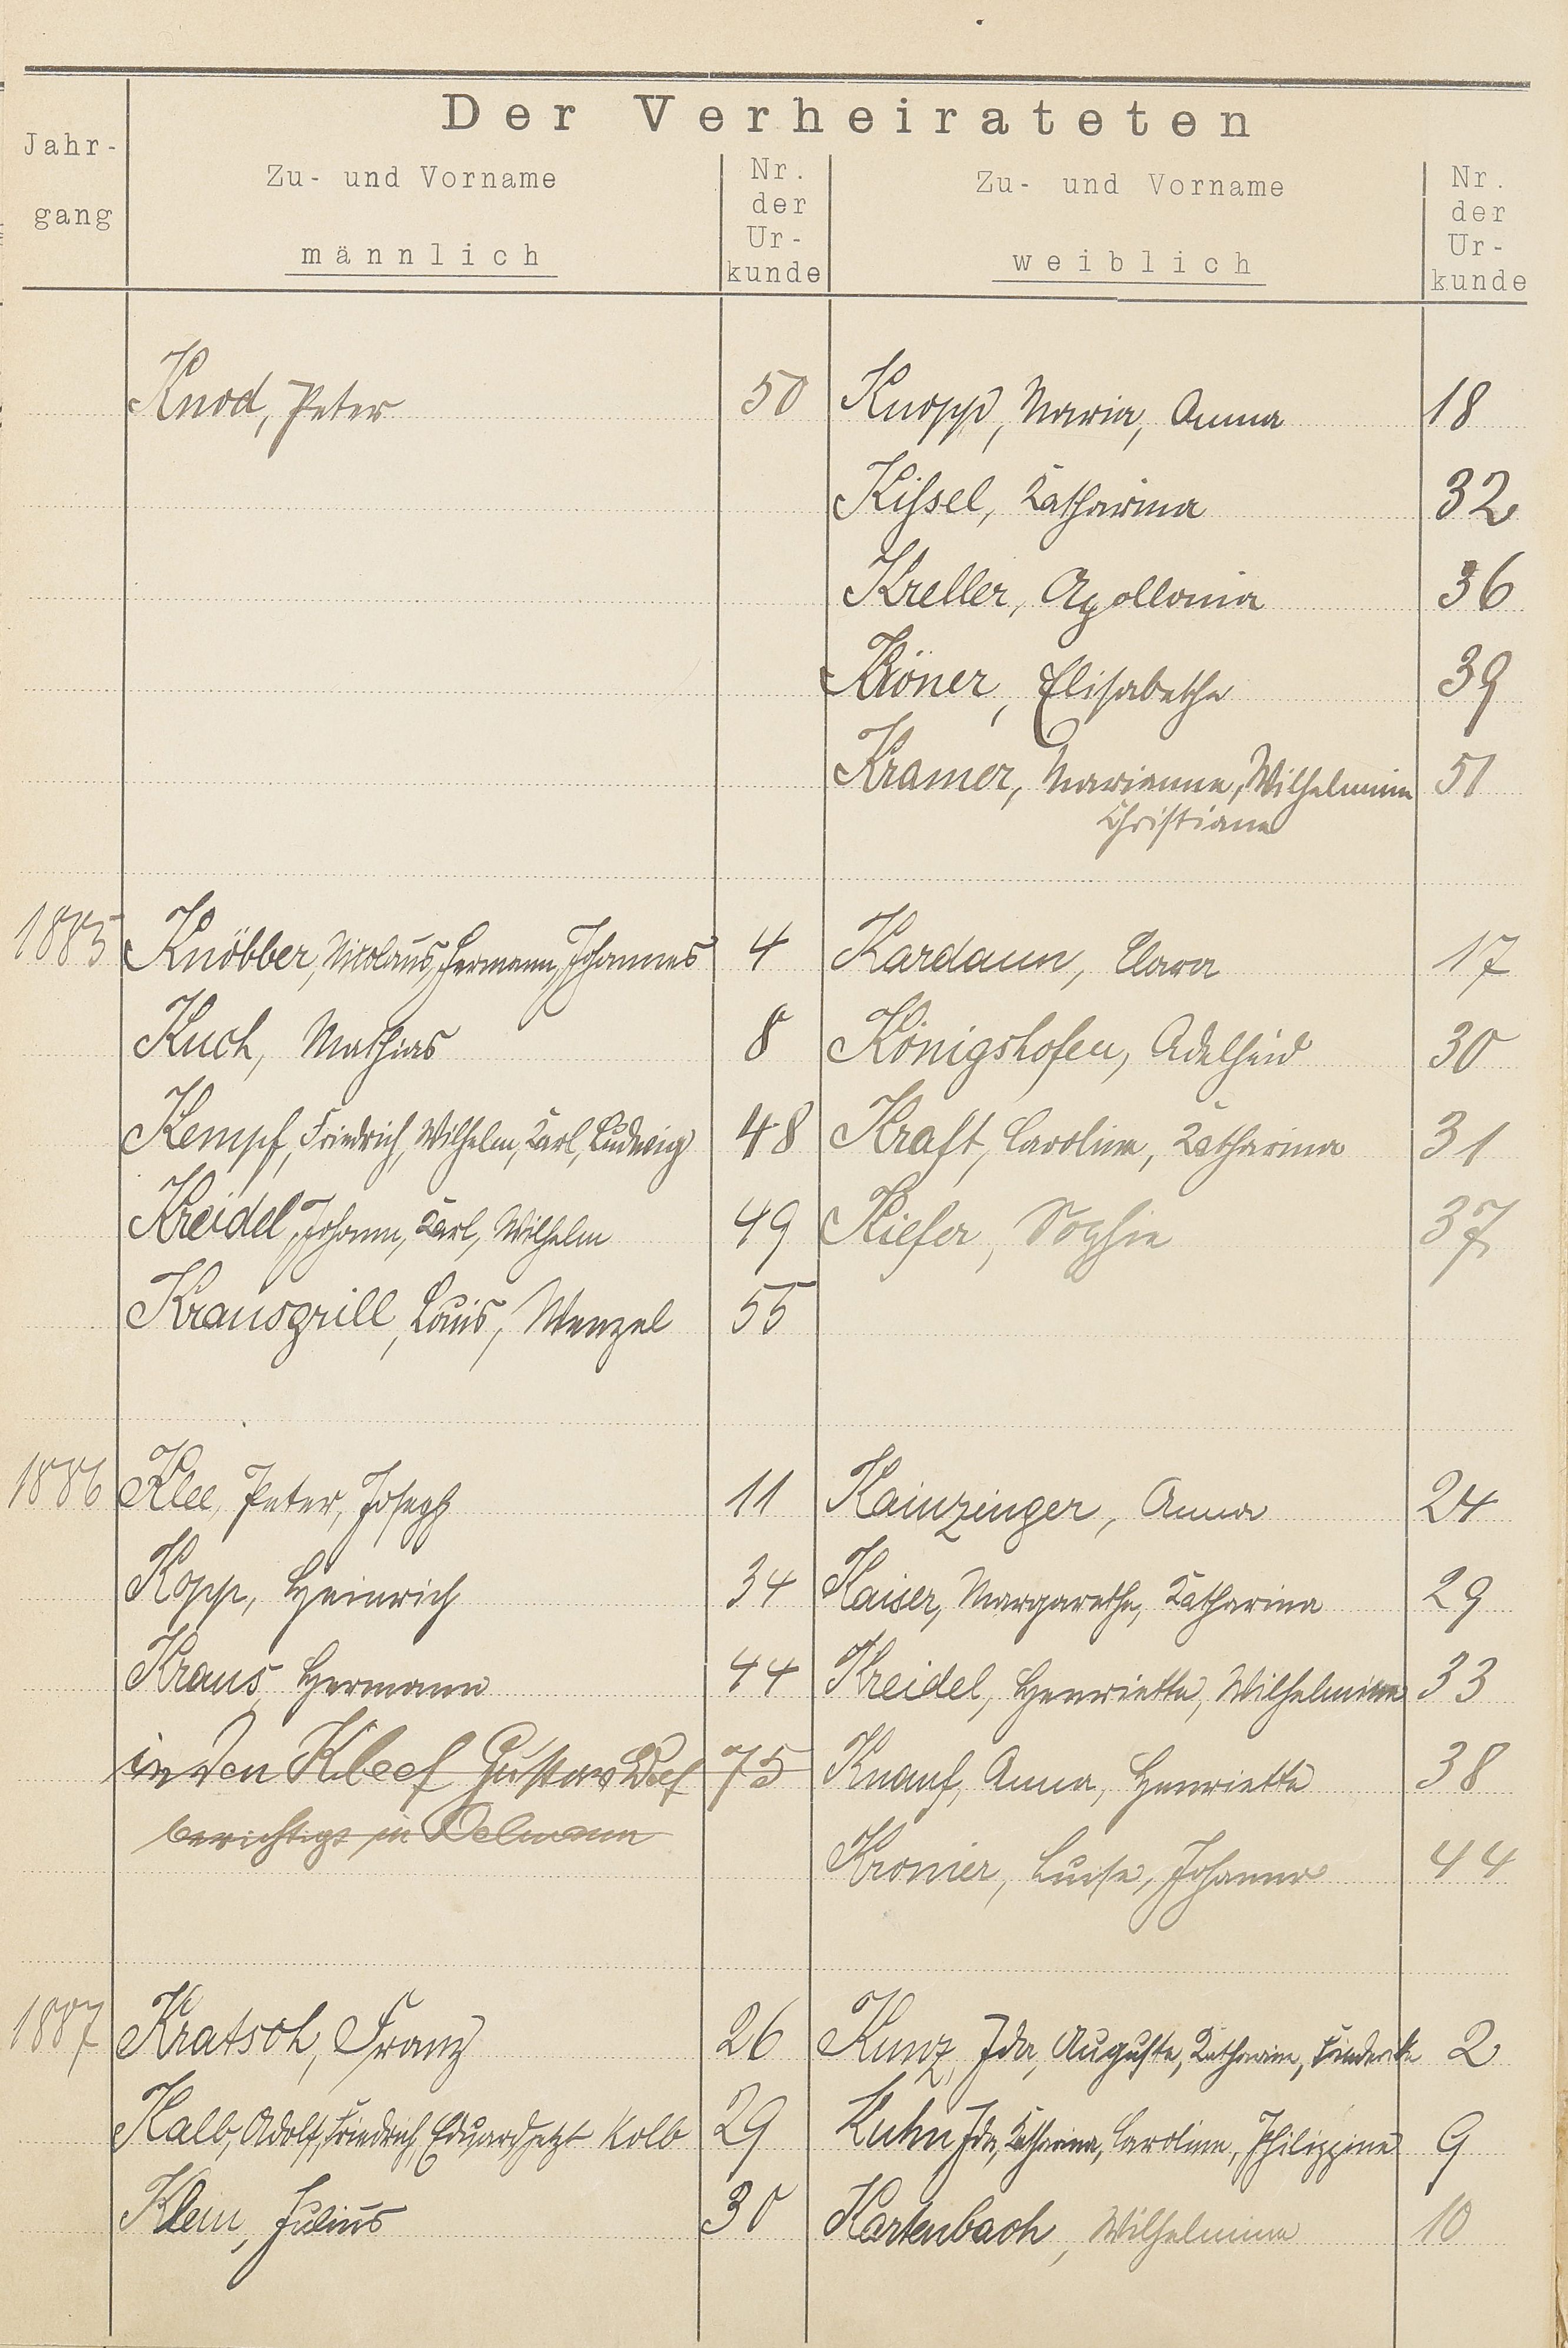 Der Verheirateten
Jahr-
gang
Zu- und Vorname
männlich
Nr.
der
Ur-
kunde
Zu- und Vorname
weiblich
Nr.
der
Ur-
kunde
Knod, Peter 50 Knopp, Maria, Anna 18
Kissel, Katharina 32
Kreller, Apollonia 36
Kröner, Elisabethe 39
Kramer, Marianne, Wilhelmine 51
Christiane
1885 Knöbber, Nicolaus, Hermann, Johannes 4 Kardaun, Clara 17
Kuch, Mathias 8 Königshofen, Adelheid 30
Kempf, Friedrich, Wilhelm, Karl, Ludwig 48 Kraft, Caroline, Katharina 31
Kreidel, Johann, Karl, Wilhelm 49 Kiefer, Sophie 37
Krausgrill, Louis, Wenzel 55
1886 Klee, Peter, Joseph 11 Kainzinger, Anna 24
Kopp, Heinrich 34 Kaiser, Margarethe, Katharina 29
Kraus Hermann 44 Kreidel, Henriette, Wilhelmine 33
in den Kleef Gustav 75 Knauf, Anna, Henriette 38
berichtigt in
Kronier, Luise, Johanna 44
1887 Kratsch, Franz 26 Kunz, Ida, Auguste, Katharine, Friederike 2
Kalb, Adolf, Friedrich, Eduard jetzt Kolb 29 Kuhn Ida, Katharina, Caroline, Philippine 9
Klein, Julius 30 Kartenbach, Wilhelmine 10